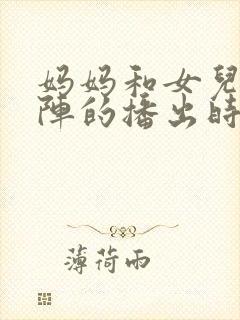 妈妈和女兒
陣的播出時
薄荷雨